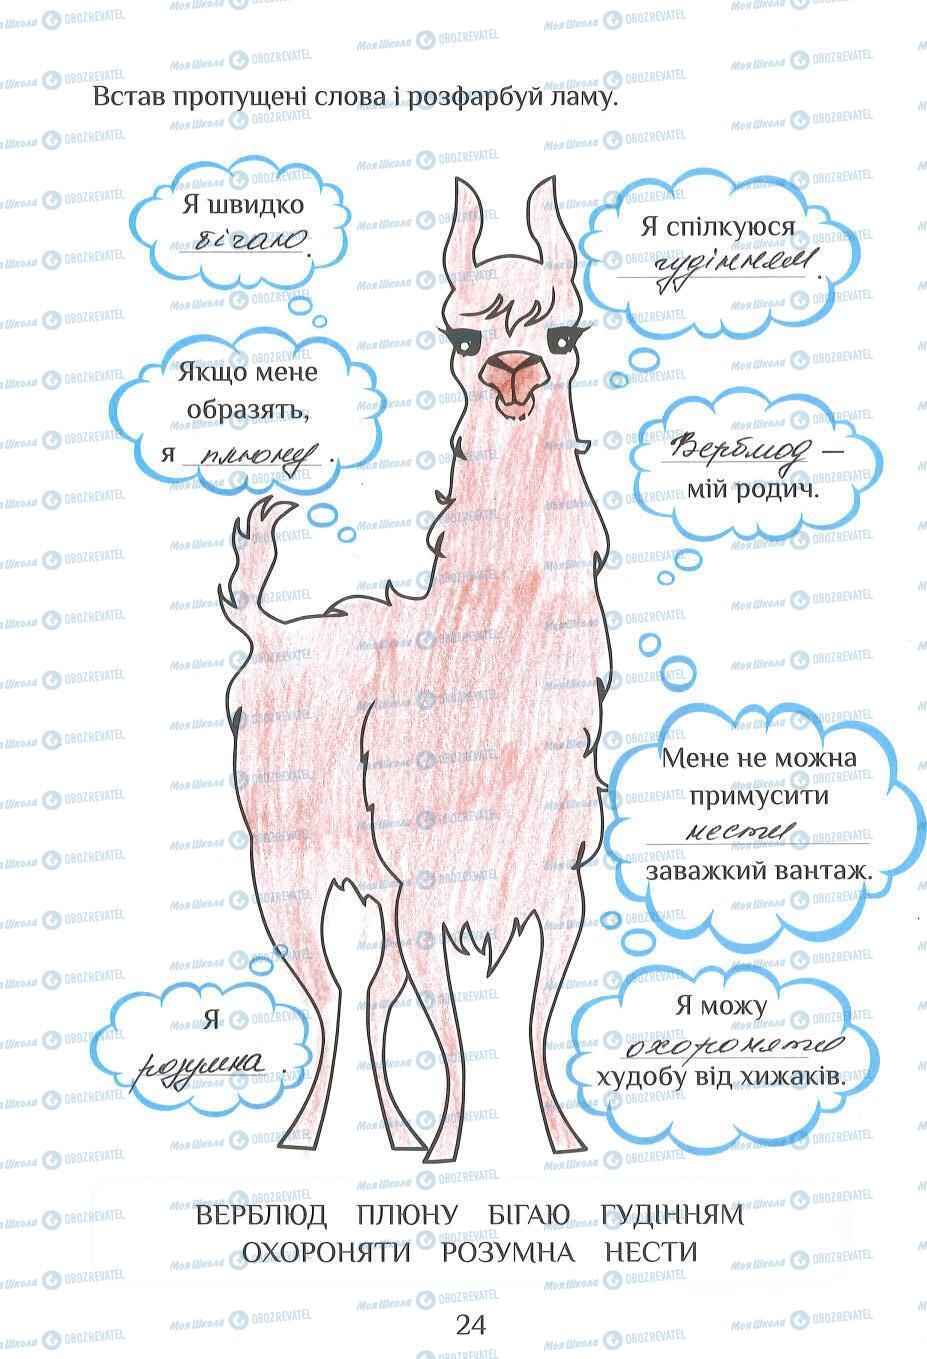 Встав пропущені слова і розфарбуй ламу.
Я швидко
бігаю.
Я спілкуюся
гудінням.
Якщо мене
образять,
я плюну.
Верблюд —
мій родич.
Мене не можна
примусити
нести
заважкий вантаж.
Я
розумна.
Я можу
охороняти
худобу від хижаків.
ВЕРБЛЮД ПЛЮНУ БІГАЮ ГУДІННЯМ
ОХОРОНЯТИ РОЗУМНА НЕСТИ
24
Моя Школа OBOZREVATEL